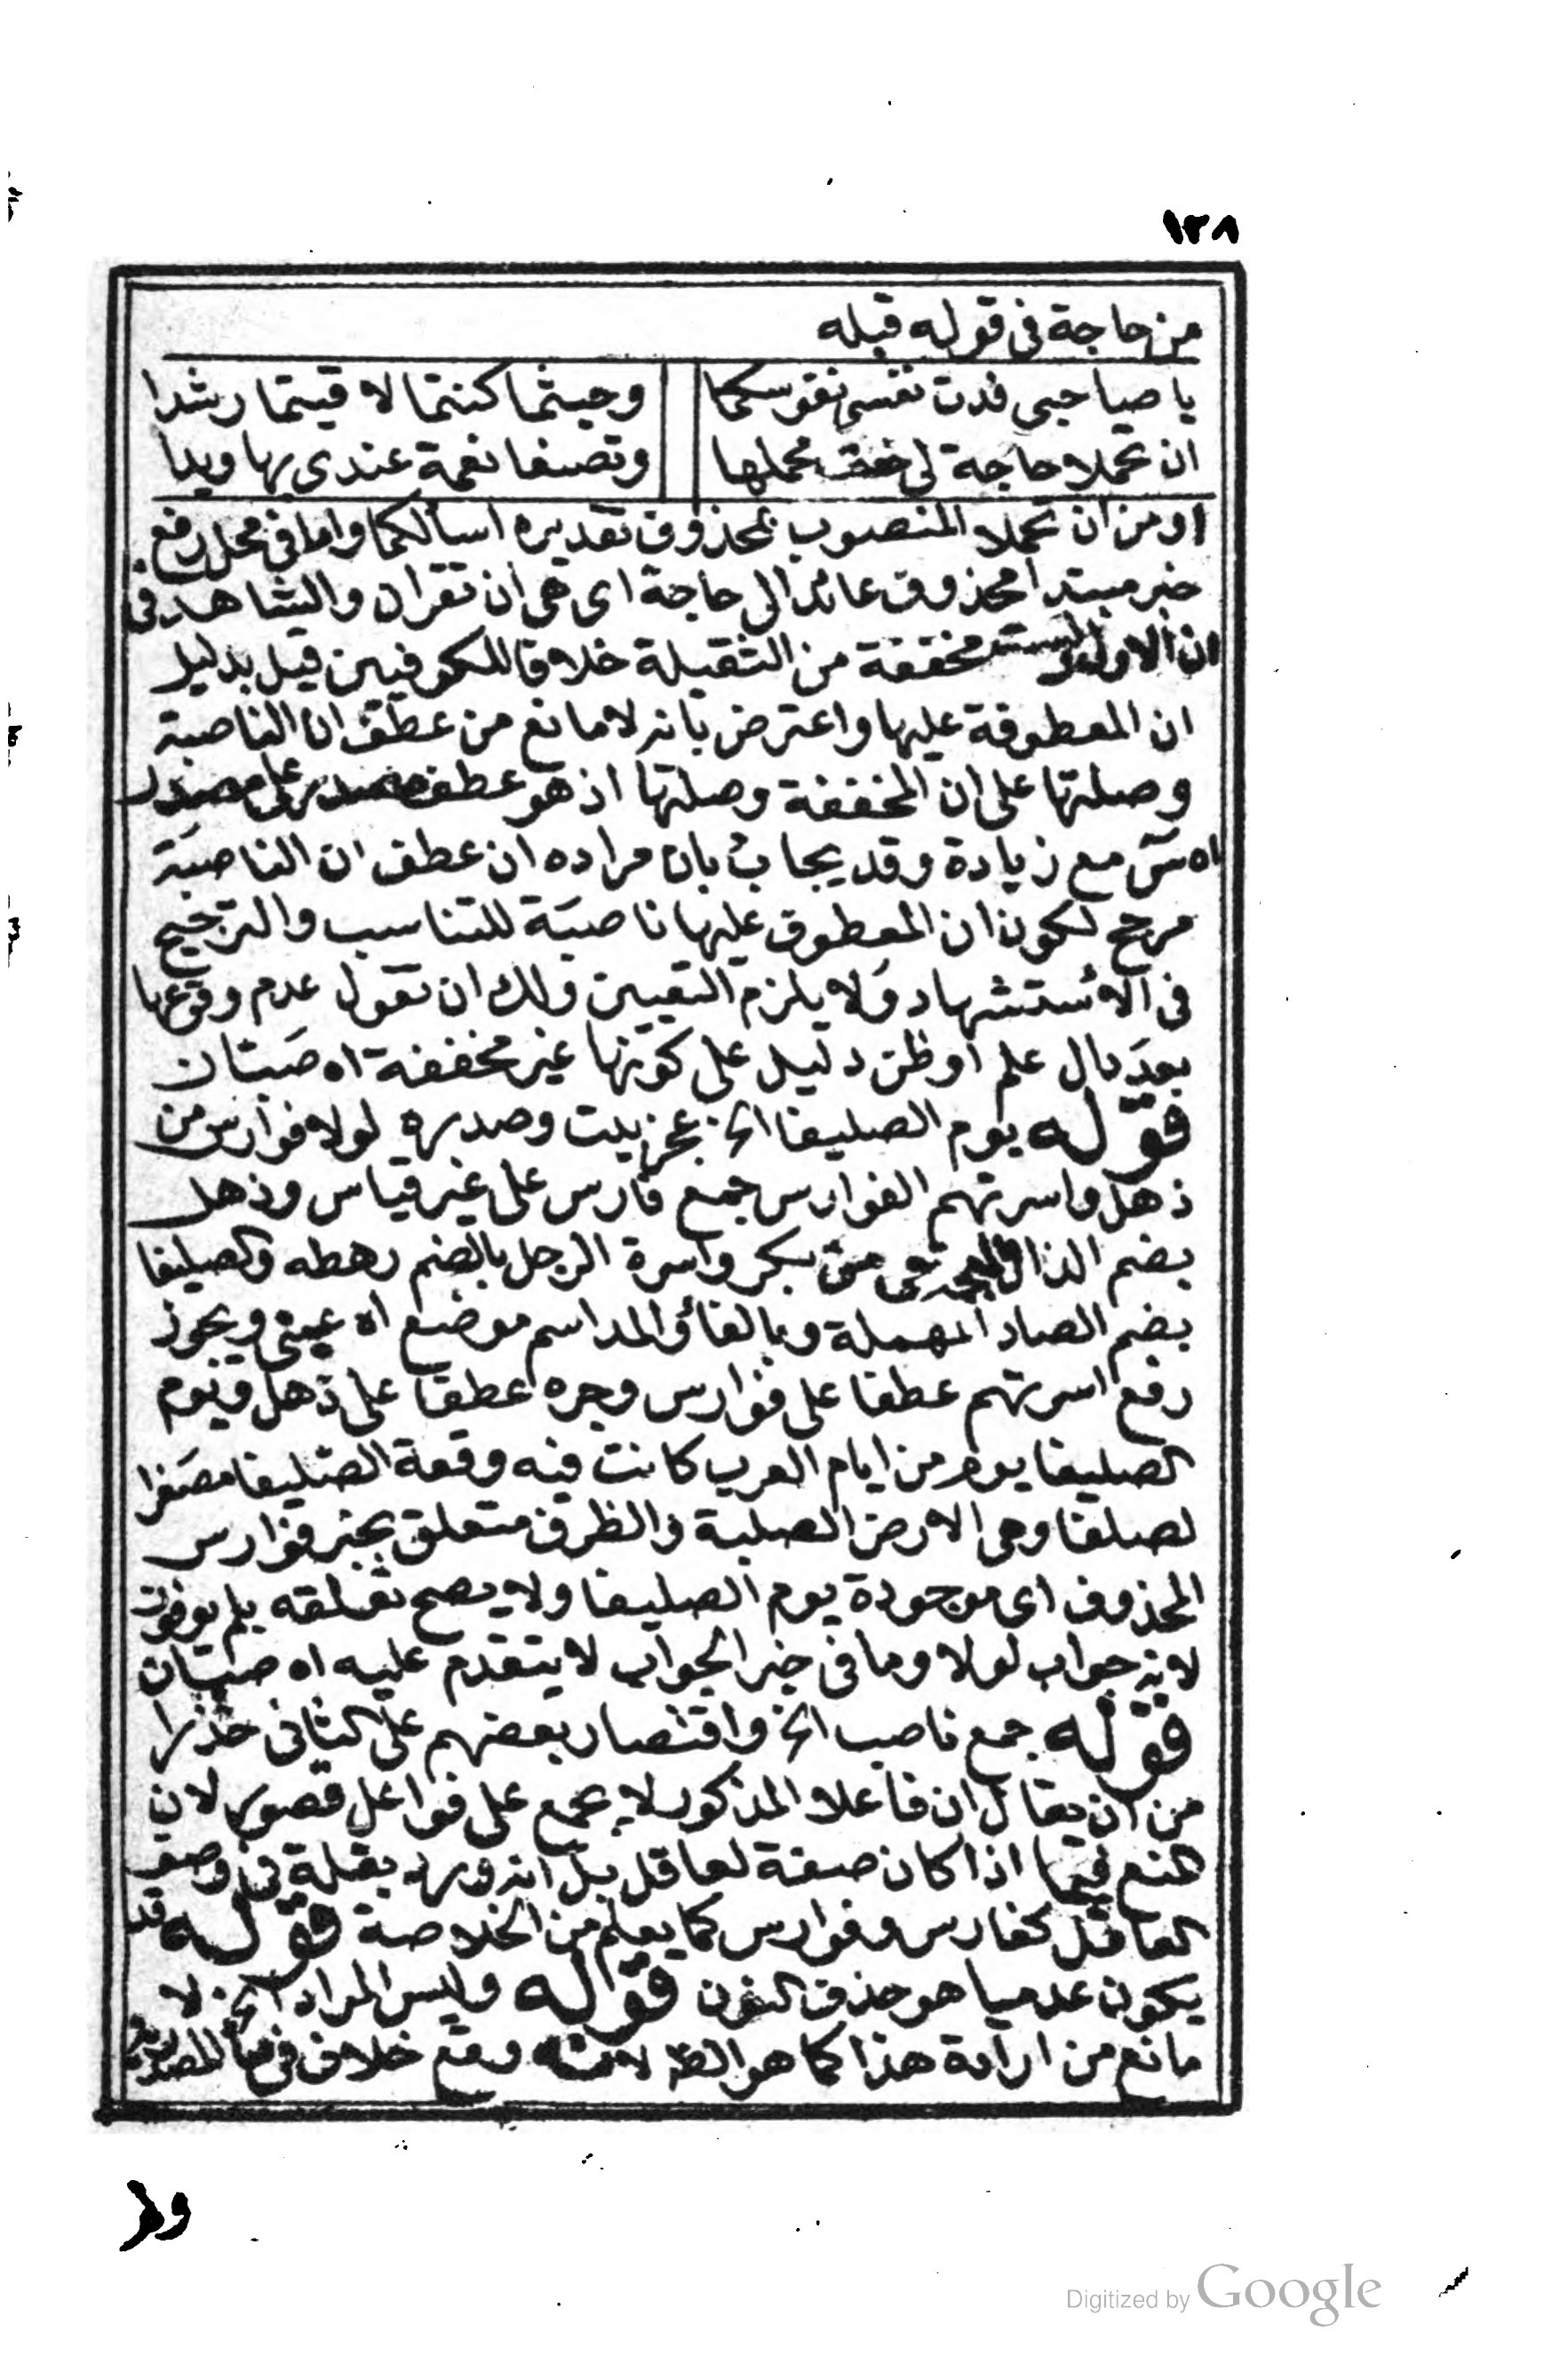 ١٣٨
من حاجة فى قوله قبله
يا صاحبى فدت نفسى نفوسكما وحيثما كنتما لا قيتما رشدا
ان تحملا حاجة لى خف محملها وتصنعا نعمة عندى بها ويدا
او من ان تحملا المنصوب بمحذوف تقديره اسألكما واما فى محل رفع
خبر مبتدا محذوف عائد الى حاجة اى هى ان تقران والشاهد فى
ان الاولى مخففة من الثقيلة خلافا للكوفيين قيل بدليل
ان المعطوفة عليها واعترض بانه لا مانع من عطف ان الناصبة
وصلتها على ان المخففة وصلتها اذ هو عطف مصدر على مصدر
اه سم مع زيادة وقد يجاب بان مراده ان عطف ان الناصبة
مرجح لكون ان المعطوف عليها ناصبة للتناسب والترجيح
فى الاستشهاد ولا يلزم التعيين ولك ان تقول عدم وقوعها
بعد دال علم او ظن دليل على كونها غير مخففة اه صبان
قوله يوم الصليفا الخ عجز بيت وصدره لولا فوارس من
ذهل واسرتهم الفوارس جمع فارس على غير قياس وذهل
بضم الذال المعجمة حى من بكر واسرة الرجل بالضم رهطه والصليفا
بضم الصاد المهملة وبالفاء والمد اسم موضع اه عينى ويجوز
رفع اسرتهم عطفا على فوارس وجره عطفا على ذهل ويوم
الصليفا يوم من ايام العرب كانت فيه وقعة الصليفا مصغرا
لصلفا وهى الارض الصلبة والظرف متعلق بخبر فوارس
المحذوف اى موجودة يوم الصليفا ولا يصح تعلقه بلم يوفون
لانه جواب لولا وما فى خبر الجواب لا يتقدم عليه اه صبان
قوله جمع ناصب الخ واقتصار بعضهم على الثانى حذرا
من ان يقال ان فاعلا المذكور لا يجمع على فواعل قصور لان
المنع فيما اذا كان صفة لعاقل بل انه ورد بقلة فى وصف
العاقل كفارس وفوارس كما يعلم من الخلاصة قوله قد
يكون عدميا هو حذف النون قوله وليس المراد الخ لا
مانع من ارادة هذا كما هو الظ لانه وقع خلاف فى ما المصدرية
Digitized by Google